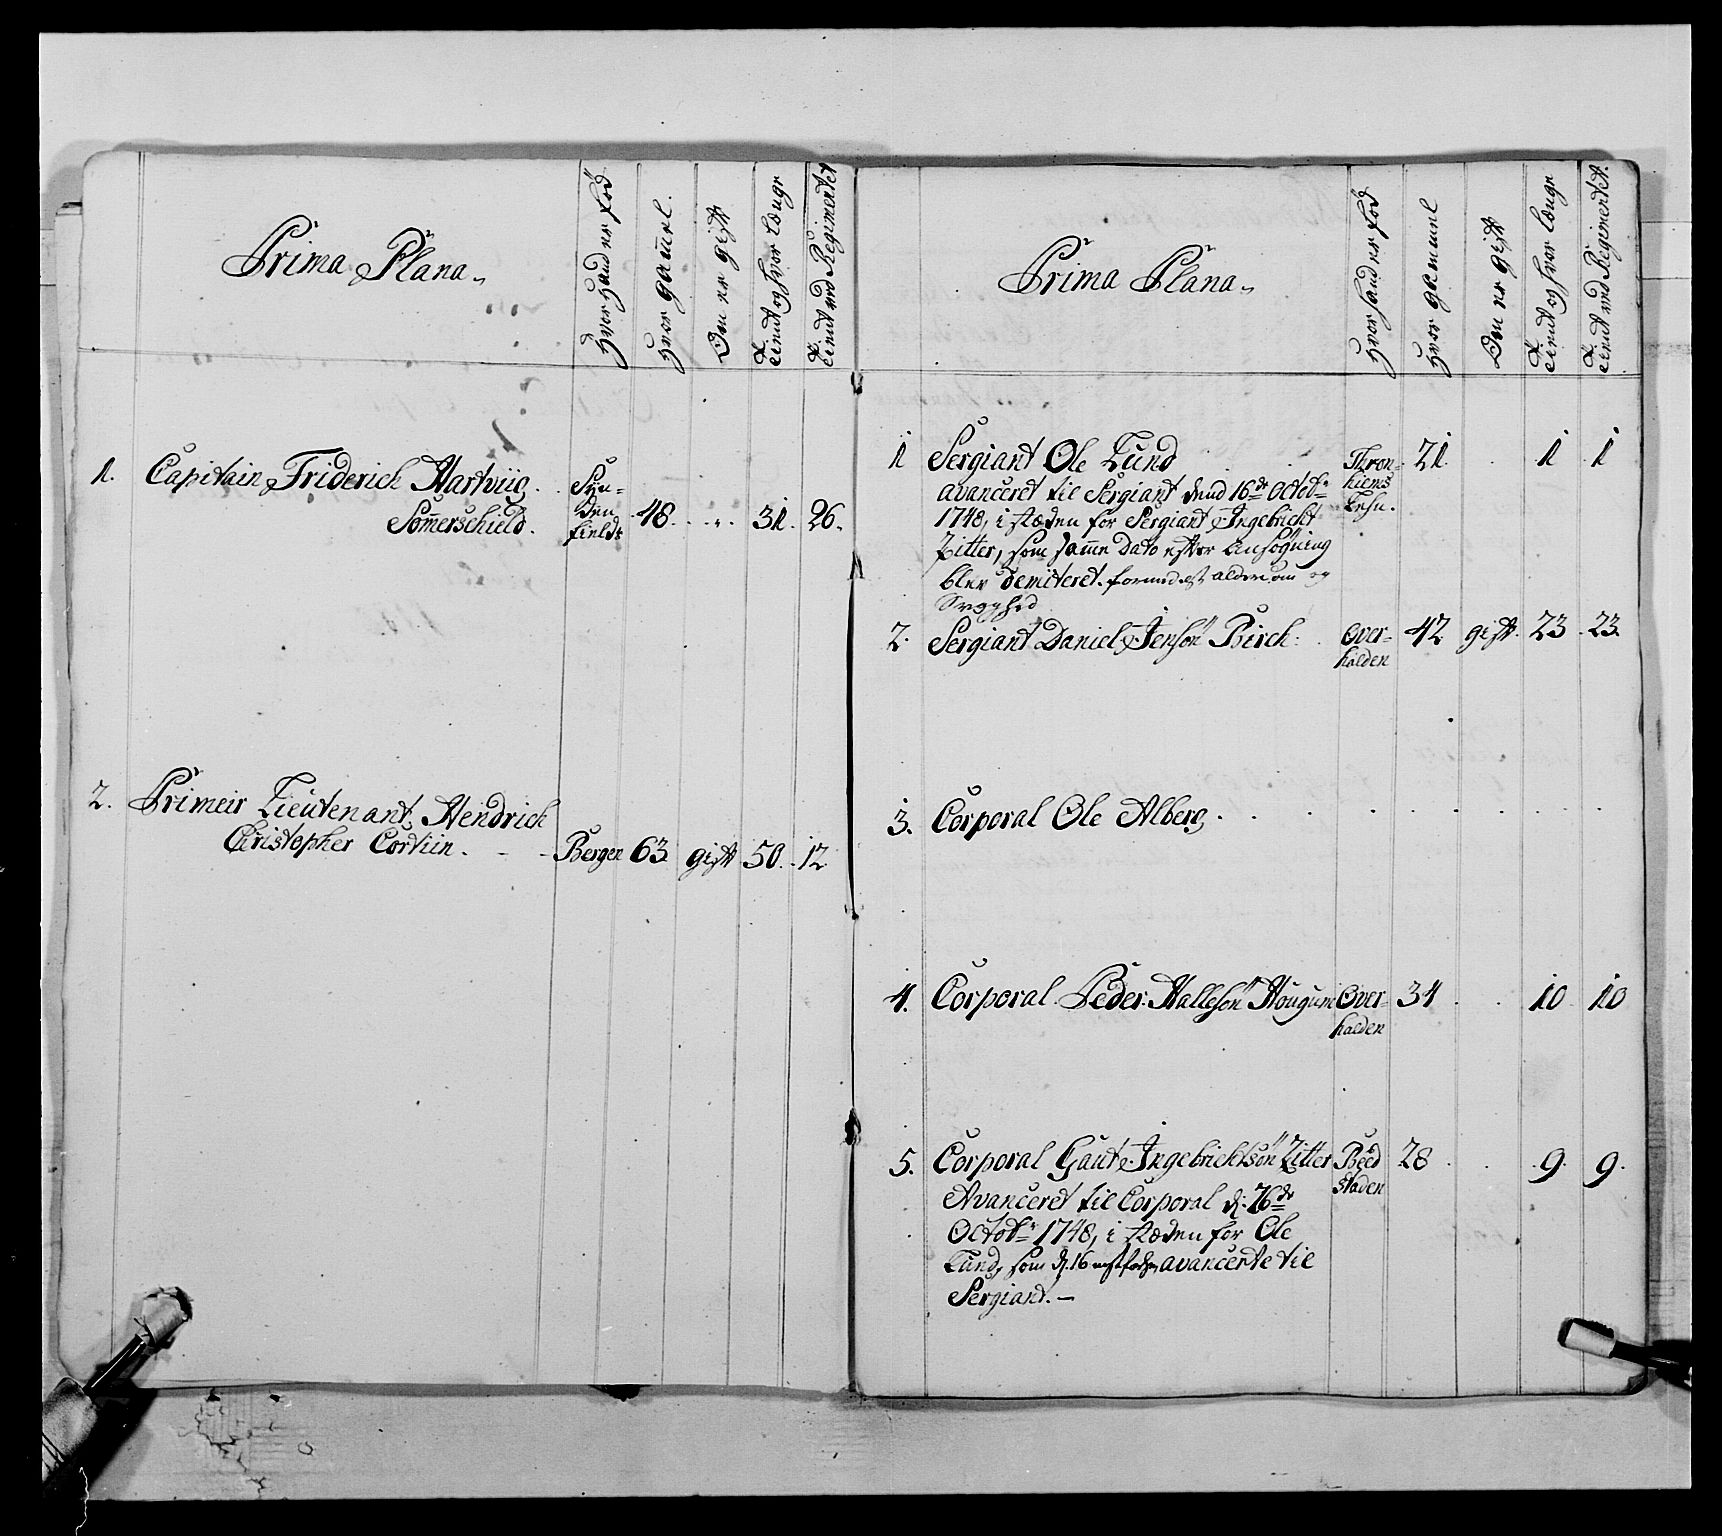 Prima Plana
Hvor hand er fød
Hvor gammel.
Om er gift
Tient og hvor længe
Tient ved Regimentet
1. Capitain Friderich Hartviig
Sommerschield.
Syn-
den
fields
48. 31. 26.
2. Primeir Lieutenant Hendrich
Christopher Cortiin. Bergen 63 gift 50. 12
Prima Plana
Hvor hand er fød
Hvor gammel
Om er gift
Tient og hvor længe
Tient ved Regimentet.
1 Sergiant Ole Lund Thron- 21. 1. 1
avanceret til Sergiant dend 16de Octobr hiems
1748, i stæden for Sergiant Ingebricht Lehn.
Zitter, som samme Dato efter Ansøgning
blev demiteret formedelst alderdom og
Svaghed
2. Sergiant Daniel Jensøn Birch. Over- 42 gift. 23. 23.
halden
3. Corporal Ole Alberg
4. Corporal Peder Hallesøn Hougum Over- 34 10 10
halden
5. Corporal Gaut Ingebrichtsøn Zitter Beed 28 9. 9.
Avanceret til Corporal d. 26de staden
Octobr 1748, i stæden for Ole
Lund, som d. 16 avancerte til
Sergiant.-